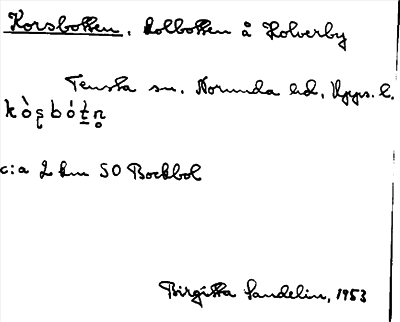 Korsbotten, kolbotten å Holverby
Tensta sn, Norunda hd, Upps. l.
kòʂbót̠n̥
c:a 2 km SO Bockbol
Birgitta Sandelin, 1953